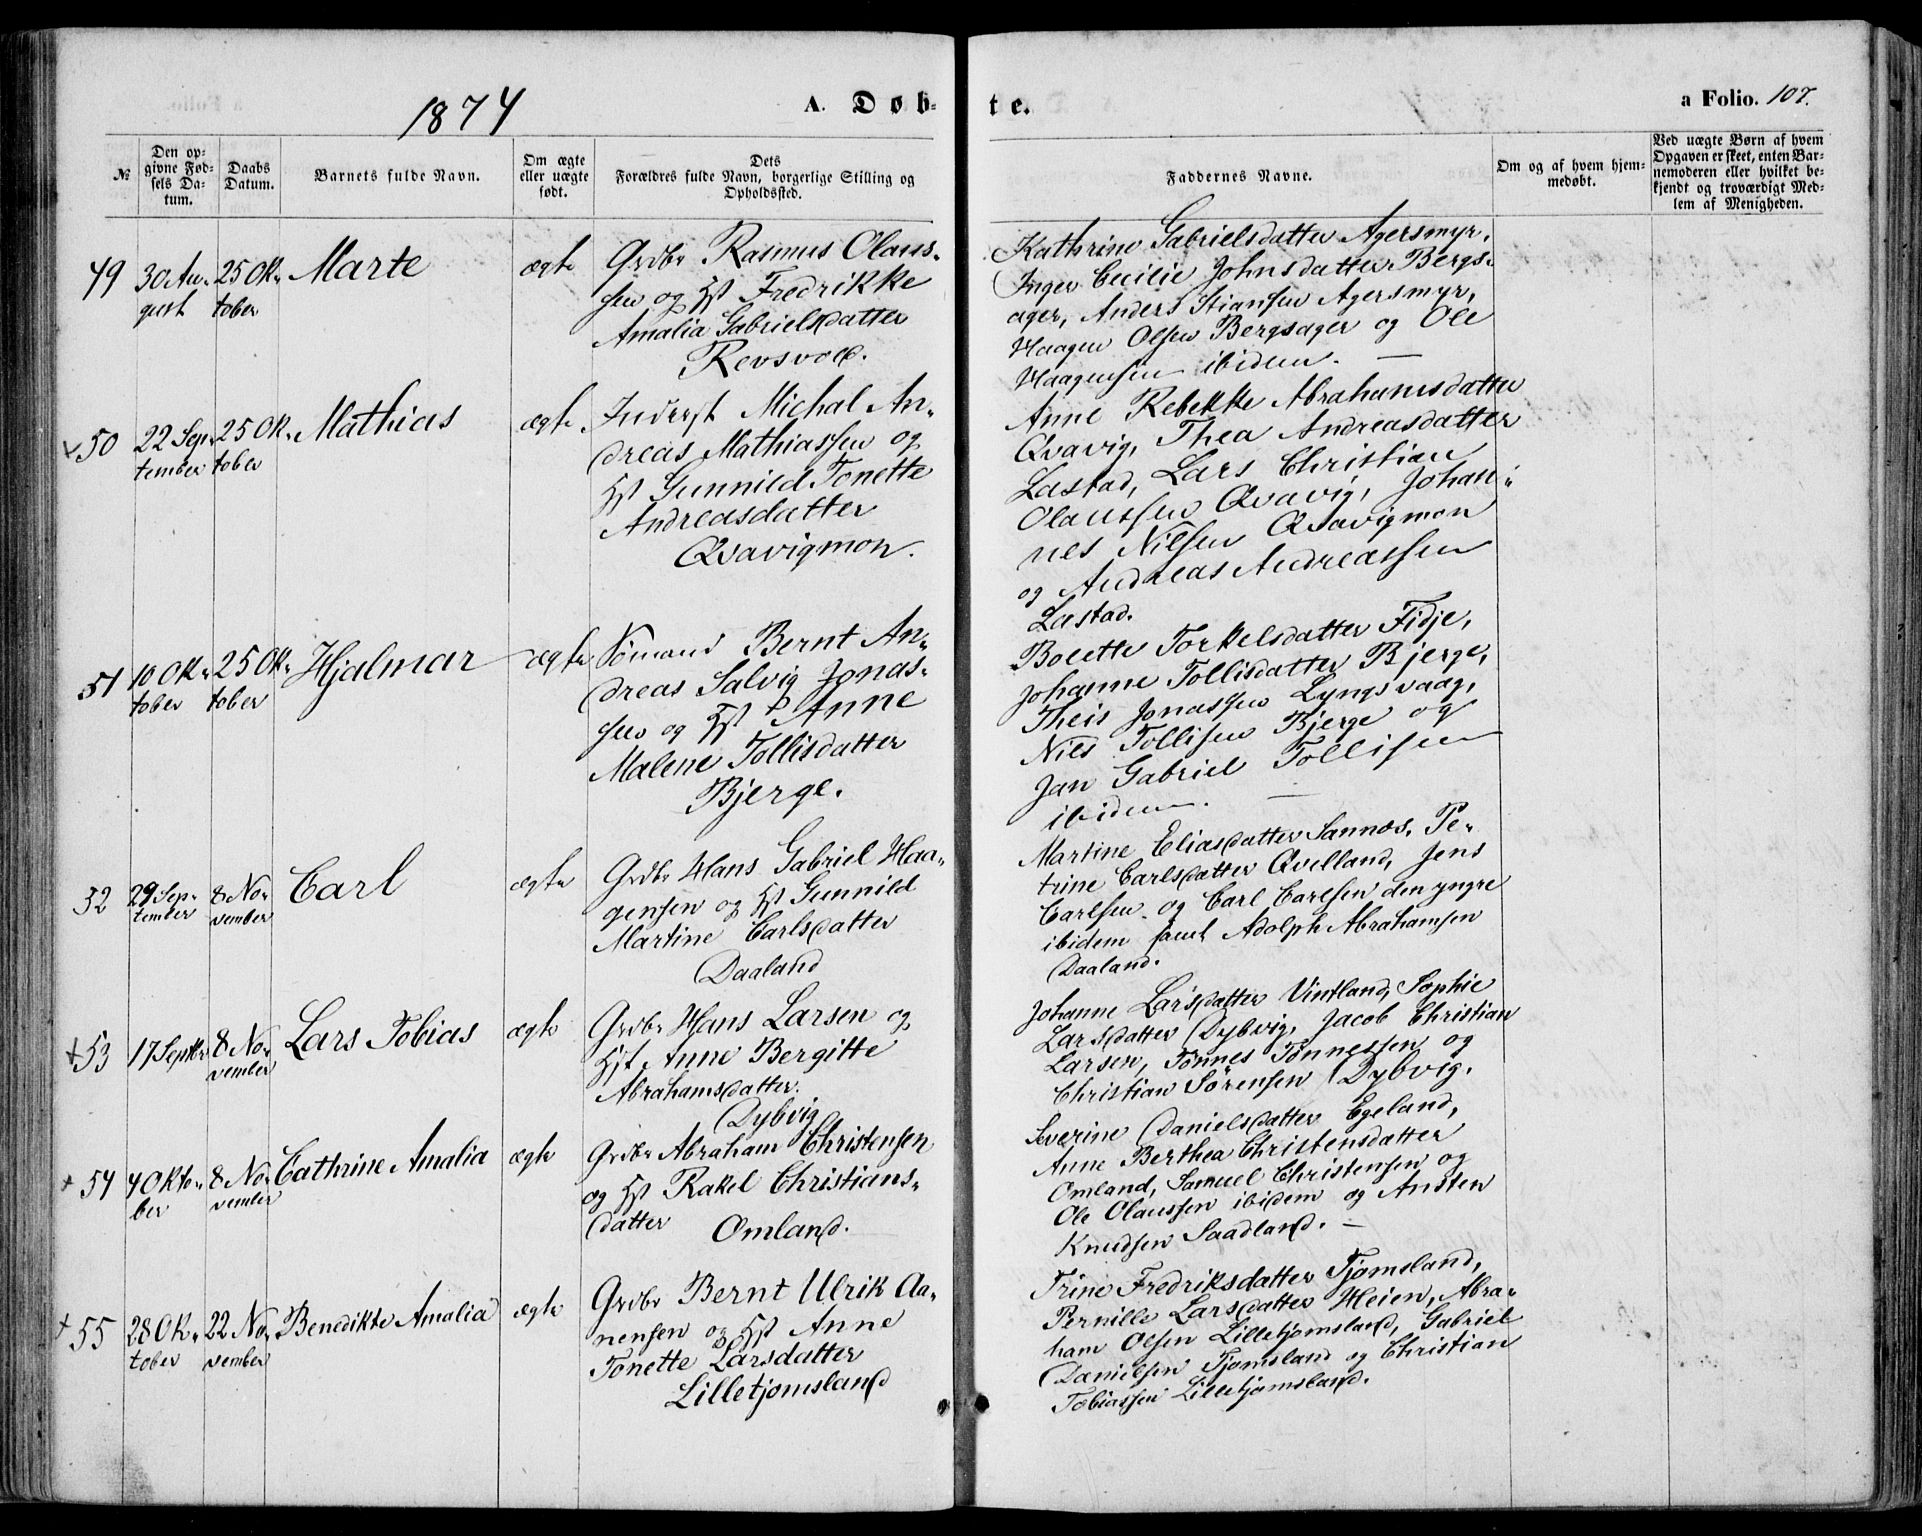 1874
A. Døb-
te.
a Folio. 107.
№
Den op-
givne Fød-
sels Da-
tum.
Daabs
Datum.
Barnets fulde Navn.
Om ægte
eller uægte
født.
Dets
Forældres fulde Navn, borgerlige Stilling og
Opholdssted.
Faddernes Navne.
Om og af hvem hjem-
medøbt.
Ved uægte Børn af hvem
Opgaven er skeet, enten Bar-
nemoderen eller hvilket be-
kjendt og troværdigt Med-
lem af Menigheden.
49
30 Au-
gust
25 Ok-
tober
Marte
ægte
Grdbr Rasmus Olaus-
sen og Hst Fredrikke
Amalia Gabrielsdatter
Revsvold.
Kathrine Gabrielsdatter Agersmyr,
Inger Cecilie Johnsdatter Bergs-
ager, Anders Stiansen Agersmyr,
Haagen Olsen Bergsager og Ole
Haagensen ibidem. —
+ 50
22 Sep-
tember
25 Ok-
tober
Mathias
ægte
Inderst Michal An-
dreas Mathiassen og
Hst Gunnild Tonette
Andreasdatter
Qvavigmon.
Anne Rebekke Abrahamsdatter
Qvavig, Thea Andreasdatter
Lastad, Lars Christian
Olaussen Qvavig, Johan-
nes Nilsen Qvavigmon
og Andreas Andreassen
Lastad.
51
10 Ok-
tober
25 Ok-
tober
Hjalmar
ægte
Sömand Bernt An-
dreas Salvig Jonas-
sen og Hst Anne
Malene Tollisdatter
Bjerge.
Bolette Torkelsdatter Fidje,
Johanne Tollisdatter Bjerge,
Theis Jonassen Lyngsvaag,
Nils Tollisen Bjerge og
Jan Gabriel Tollisen
ibidem. —
52
29 Sep-
tember
8 No-
vember
Carl
ægte
Grdbr Hans Gabriel Haa-
gensen og Hst Gunnild
Martine Carlsdatter
Daaland
Martine Eliasdatter Sannæs, Pe-
trine Carlsdatter Qvelland, Jens
Carlsen og Carl Carlsen den yngre
ibidem samt Adolph Abrahamsen
Daaland.
+ 53
17 Septbr
8 No-
vember
Lars Tobias
ægte
Grdbr Hans Larsen og
Hst Anne Bergitte
Abrahamsdatter.
Dybvig
Johanne Larsdatter Vintland, Sophie
Larsdatter Dybvig, Jacob Christian
Larsen, Tönnes Tönnessen og
Christian Sörensen Dybvig.
+ 54
4 Okto-
ber
8 No-
vember
Cathrine Amalia
ægte
Grdbr Abraham Christensen
og Hst Rakel Christians-
datter
Omland.
Severine Danielsdatter Egeland,
Anne Berthea Christensdatter
Omland, Samuel Christensen og
Ole Olaussen ibidem og Ansten
Knudsen Saadland. —
+ 55
28 Ok-
tober
22 No-
vember
Benedikte Amalia
ægte
Grdbr Bernt Ulrik Aa-
nensen og Hst Anne
Tonette Larsdatter
Lilletjomsland
Trine Fredriksdatter Tjomsland,
Pernille Larsdatter Heien, Abra-
ham Olsen Lilletjomsland, Gabriel
Danielsen Tjomsland og Christian
Tobiassen Lilletjomsland.